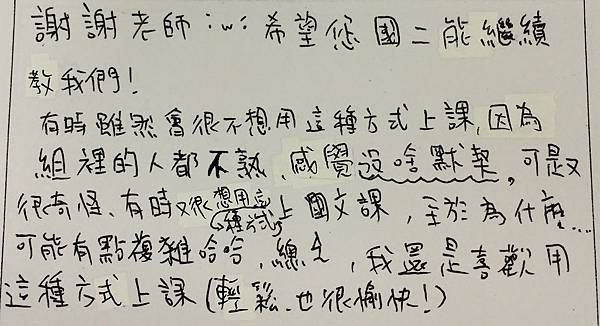 謝謝老師 :w: 希望您國二能繼續
教我們!
有時雖然會很不想用這種方式上課,因為
組裡的人都不熟、感覺沒啥默契。可是又
很奇怪、有時又很想用這種方式上國文課,至於為什麼....
可能有點複雜哈哈,總之,我還是喜歡用
這種方式上課(輕鬆、也很愉快!)